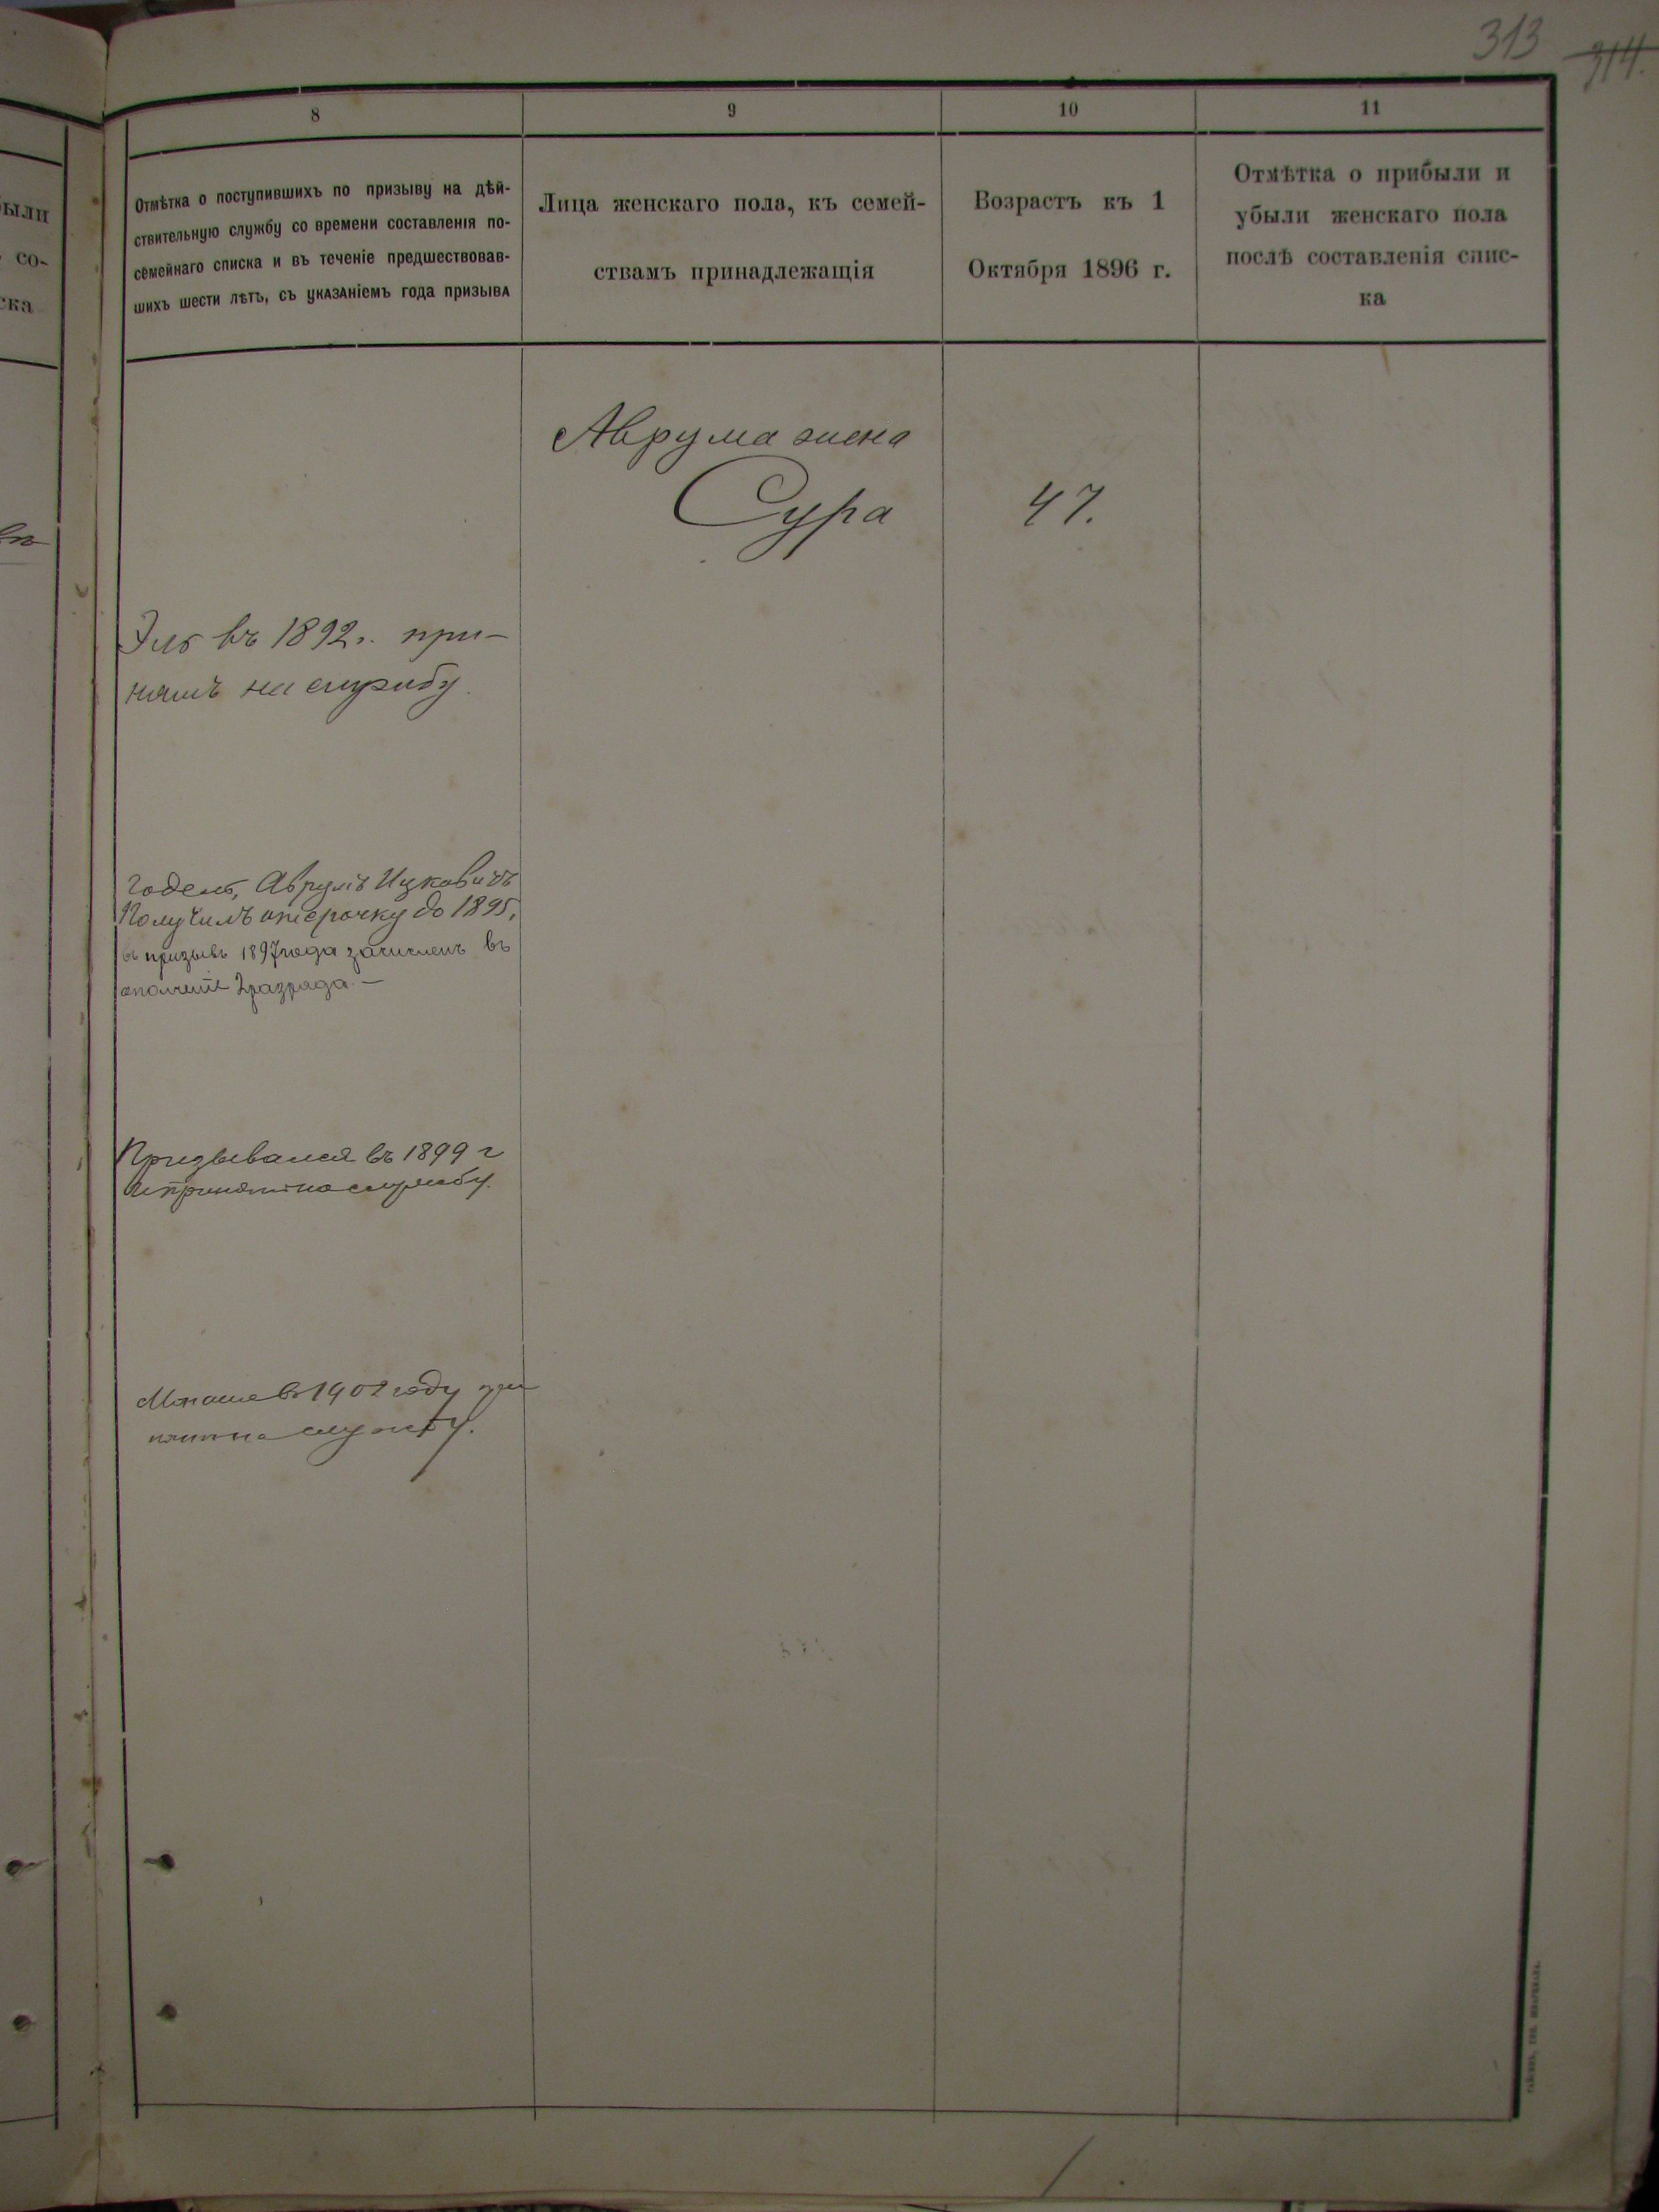 313 314.
8
9
10
11
Отмѣтка о поступившихъ по призыву на дѣй-
ствительную службу со времени составленія по-
семейнаго списка и въ теченіе предшествовав-
шихъ шести лѣтъ, съ указаніемъ года призыва
Лица женскаго пола, къ семей-
ствамъ принадлежащія
Возрастъ къ 1
Октября 1896 г.
Отмѣтка о прибыли и
убыли женскаго пола
послѣ составленія спис-
ка
были
со-
ска
Аврума жена
Сура 47.
въ 1892 г. при-
нятъ на службу.
Годель, Аврумъ Ицковичъ
Получилъ отсрочку до 1895,
въ призывъ 1897 года зачисленъ въ
ополченіе 2 разряда. —
Призывался въ 1899 г
принятъ на службу.
в 1902 году при
нятъ на службу.